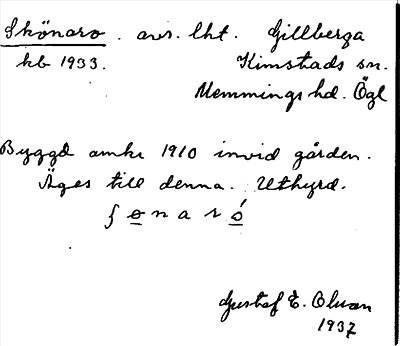 Skönaro. avs. lht. Gillberga
kb 1933. Kimstads sn.
Memmings hd. Ögl
Byggd omkr 1910 invid gården.
Äges till denna. Uthyrd.
ʃ ɵ n a r ó
Gustaf E. Olsson
1937